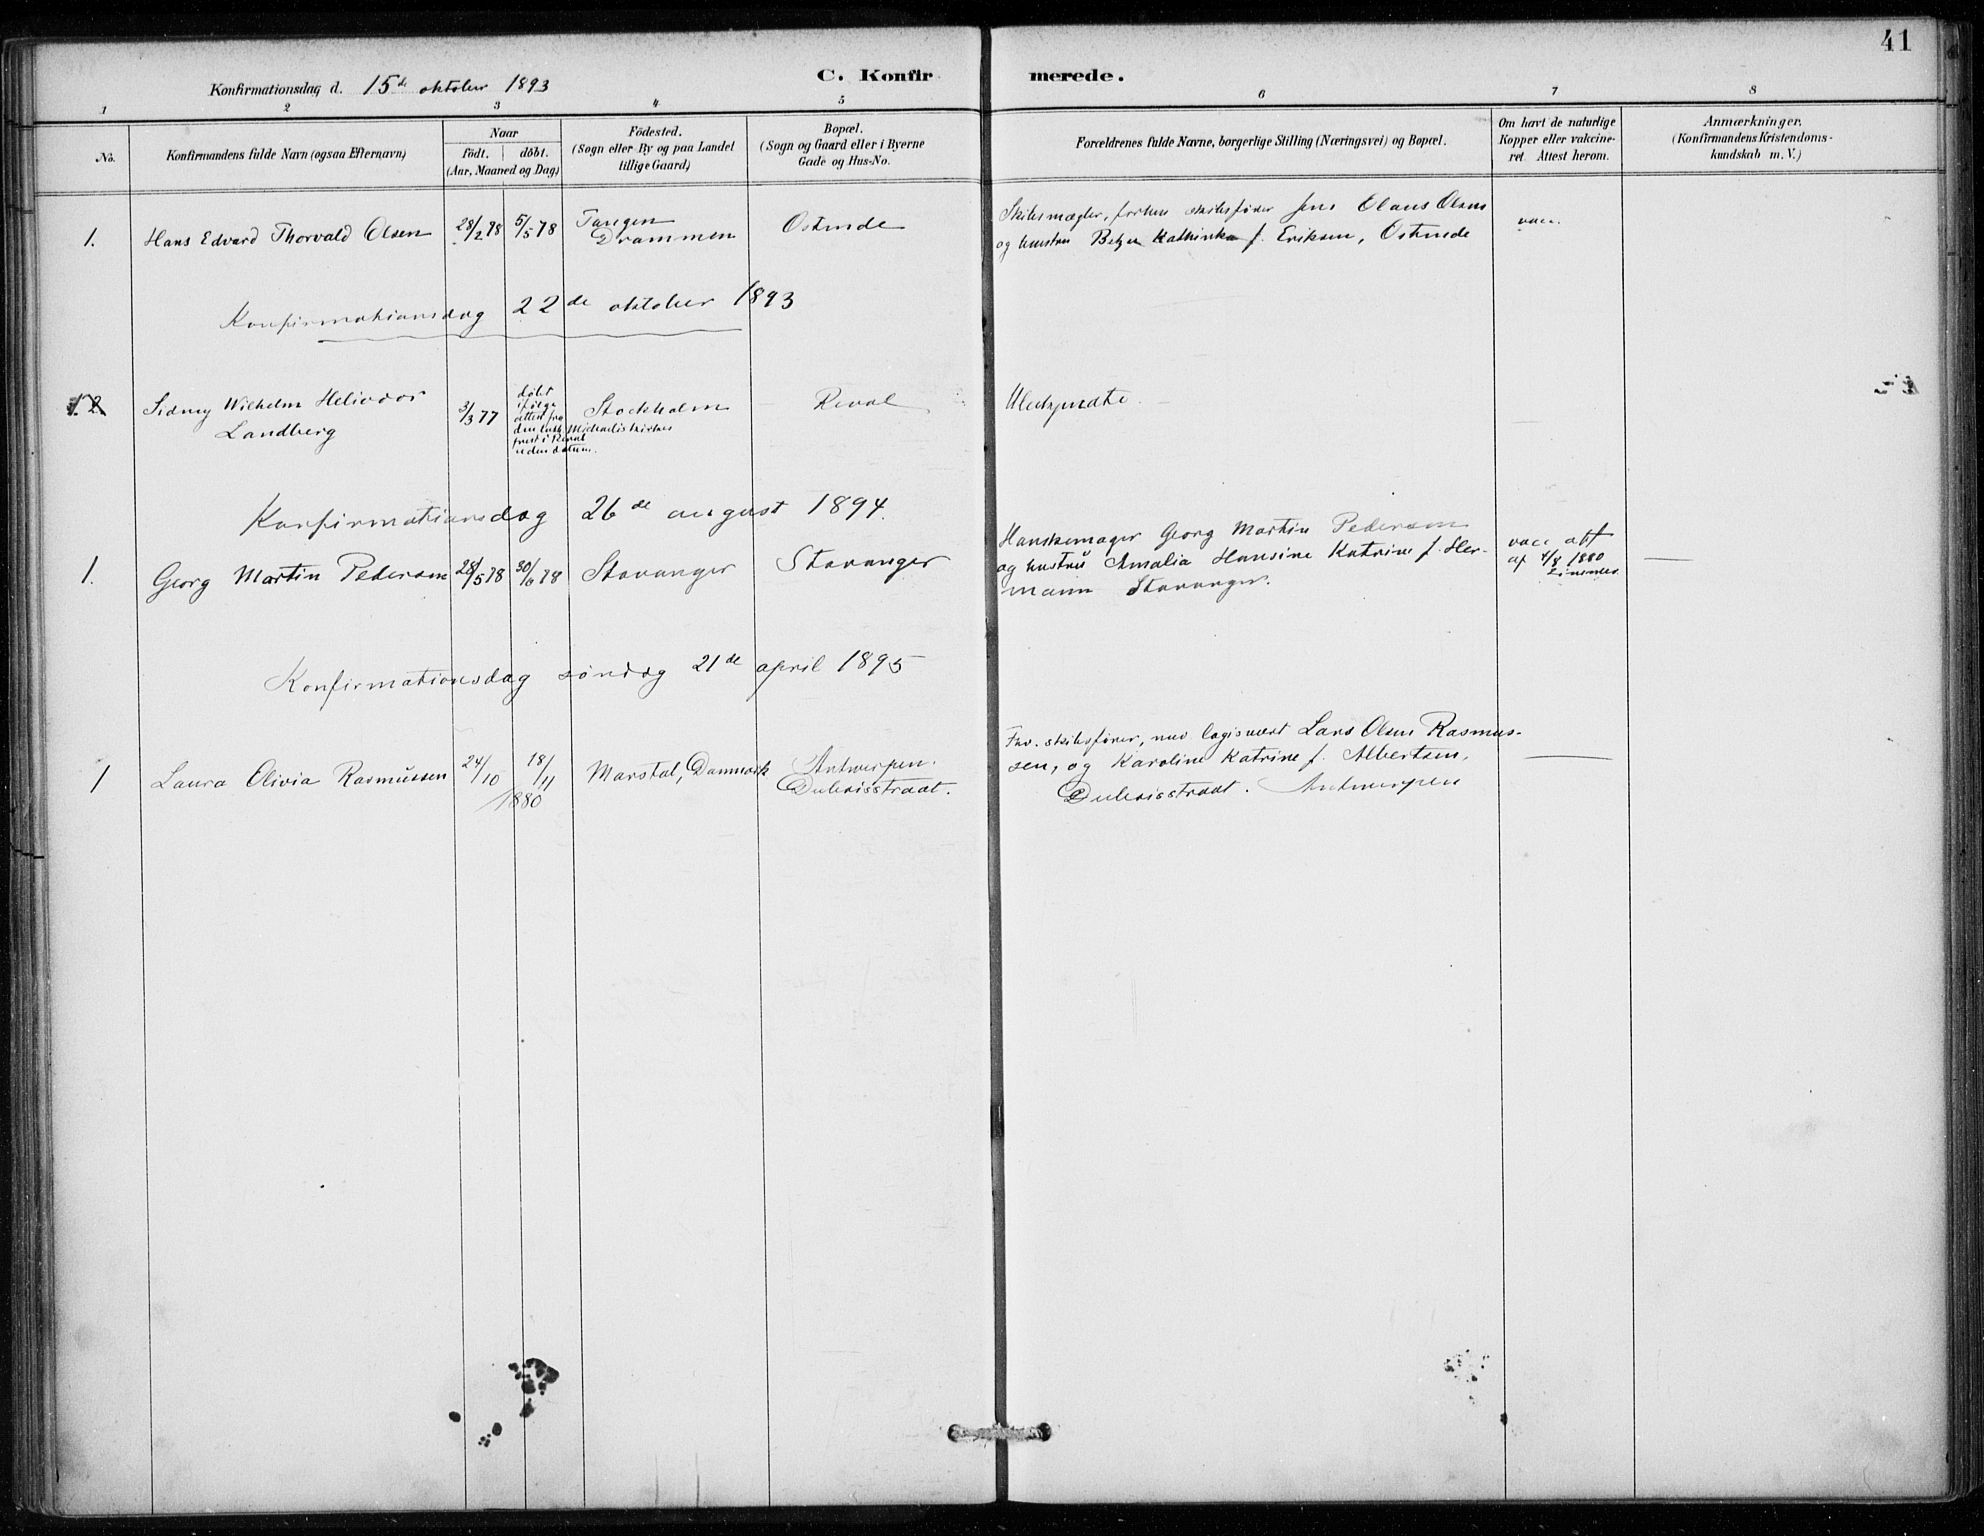 41
C. Konfirmerede.
Konfirmationsdag d. 15de oktober 1893
1 2 3 4 5 6 7 8
No.
Konfirmandens fulde Navn (ogsaa Efternavn)
Naar
født. døbt.
(Aar, Maaned og Dag)
Fødested.
(Sogn eller By og paa Landet
tillige Gaard)
Bopæl.
(Sogn og Gaard eller i Byerne
Gade og Hus-No.
Forældrenes fulde Navne, borgerlige Stilling (Næringsvei) og Bopæl.
Om havt de naturlige
Kopper eller vakcine-
ret. Attest herom.
Anmærkninger.
(Konfirmandens Kristendoms-
kundskab m. V.)
1. Hans Edvard Thorvald Olsen 28/2 78 5/5 78
Tangen
Drammen
Ostende
Skibsmægler, forhen skibsfører Jens Olaus Olsen
og hustru Kathinka f. Eriksen, Ostende
vacc.
Konfirmationsdag 22de oktober 1893
1. 2
Sidney Wilhelm Heliodor
Landberg
3/3 77
døbt
ifølge
attest fra
den luth. Michaelis kirkes
prest i Reval
uden datum.
Stockholm
Reval
Konfirmationsdag 26de august 1894.
1. Georg Martin Pedersen 28/5 78 30/6 78 Stavanger Stavanger
Hanskemager Georg Martin Pedersen
og hustru Amalia Hansine Katrine f. Her-
mann Stavanger.
vacc att
af 4/8 1880
Konfirmationsdag søndag 21de april 1895
1 Laura Olivia Rasmussen 24/10 18/11
1880
Marstal, Danmark
Antwerpen.
Duboisstraat.
Fhv. skibsfører, nu logisvert Lars Olsen Rasmus-
sen, og Karoline Katrine f. Albertsen,
Duboisstraat. Antwerpen